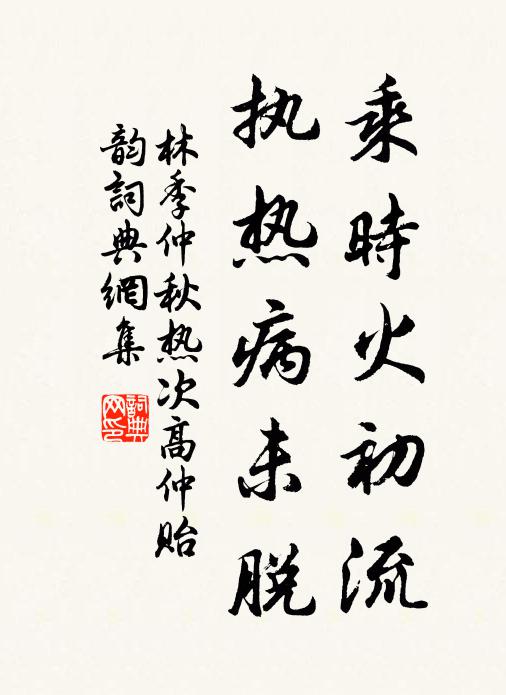 乘時火初流
执热病未脱
林季仲秋热次高仲贻
韵詞典網集
詞典网印